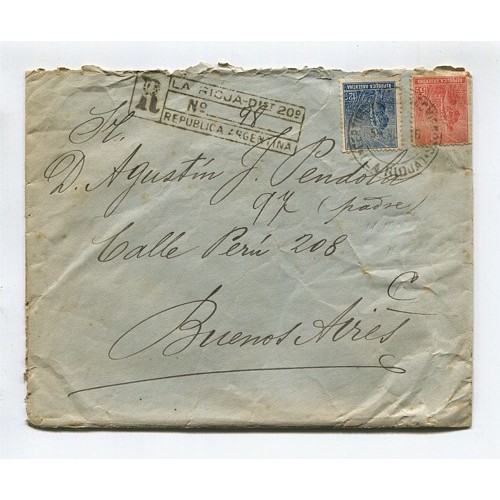 R
LA RIOJA-Dist 20º
Nº 98
REPUBLICA ARGENTINA
REPUBLICA ARGENTINA
12C
REPUBLICA ARGENTINA
5C
LA RIOJA
Sr.
D. Agustín J. Pendola
97 (padre)
Calle Perú 208
C
Buenos Aires